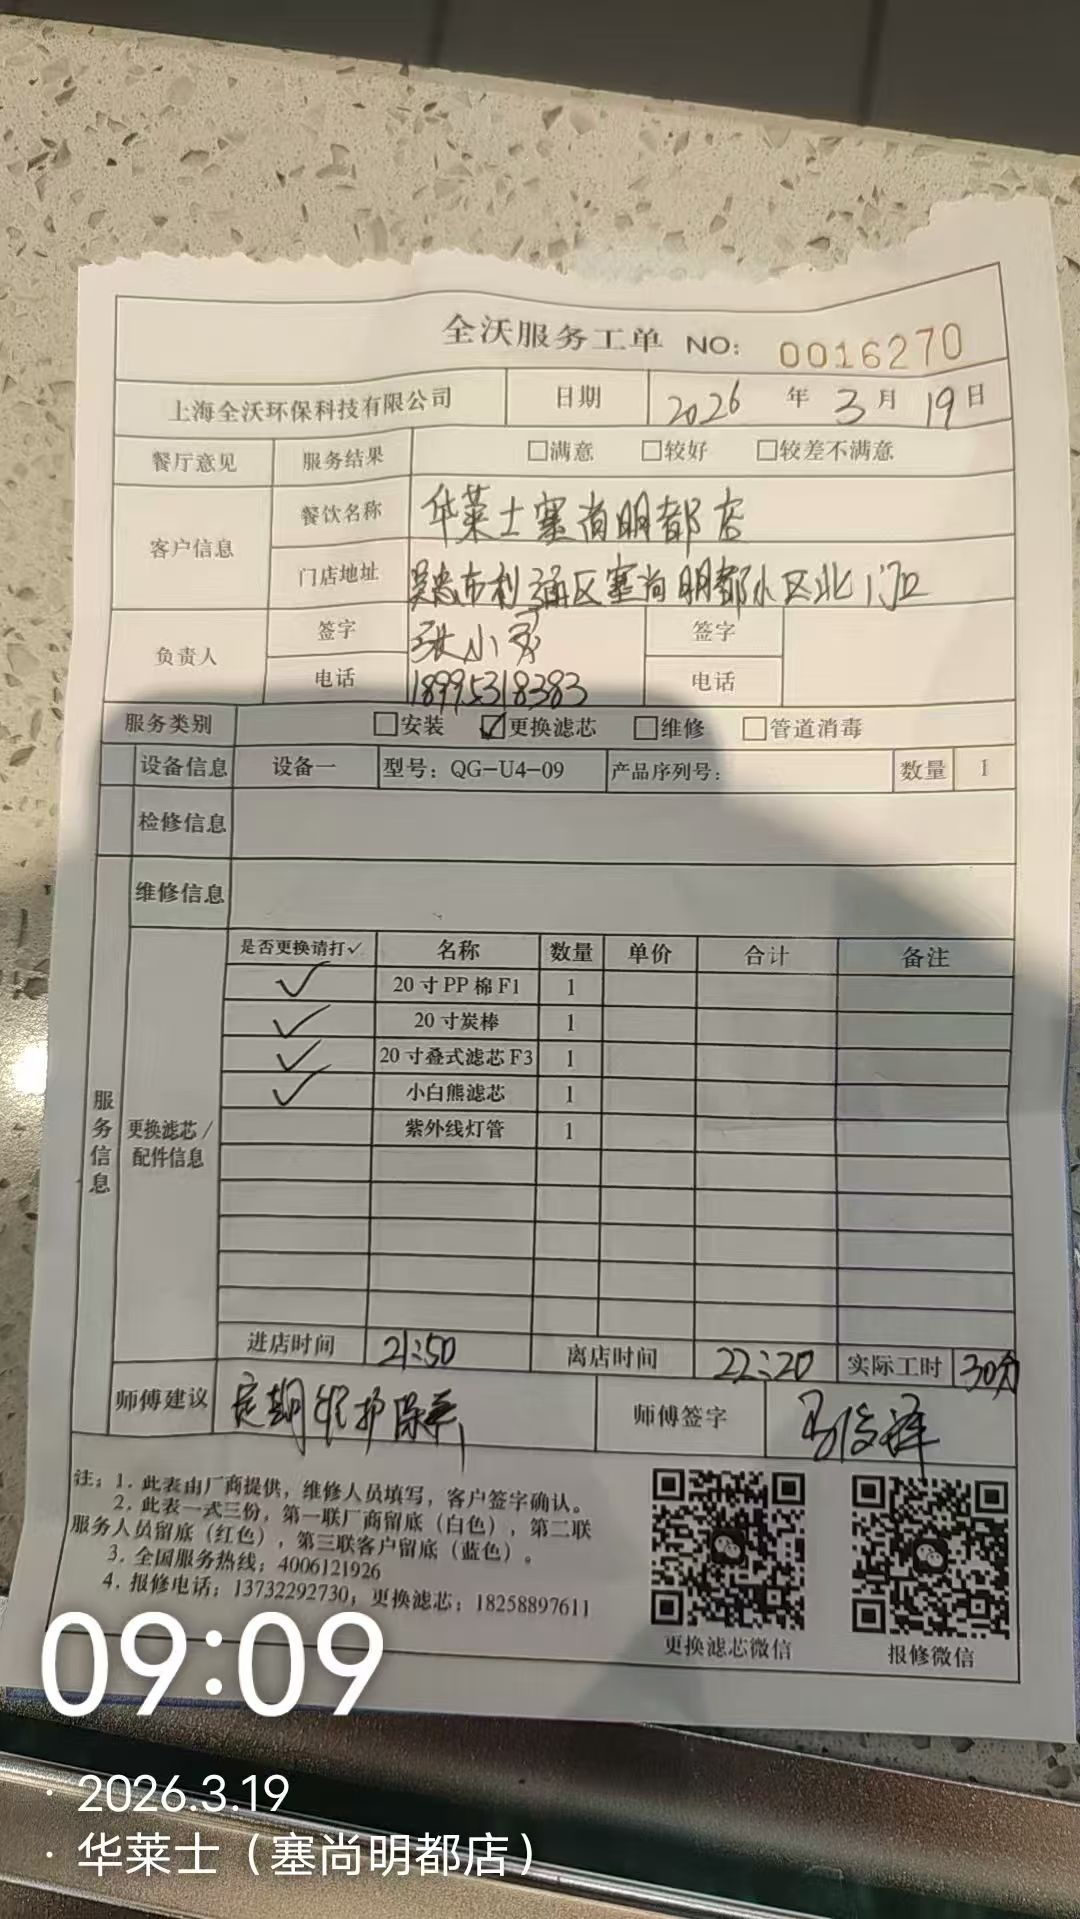 全沃服务工单 NO: 0016270
上海全沃环保科技有限公司 日期 2026 年 3 月 19 日
餐厅意见 服务结果 □满意 □较好 □较差不满意
客户信息 餐饮名称 华莱士塞尚明都店
门店地址 吴忠市利通区塞尚明都小区北门口
负责人 签字 张小 签字
电话 18995318383 电话
服务类别 □安装 ☑更换滤芯 □维修 □管道消毒
设备信息 设备一 型号：QG-U4-09 产品序列号： 数量 1
检修信息
维修信息
是否更换请打✓ 名称 数量 单价 合计 备注
✓ 20寸PP棉F1 1
✓ 20寸炭棒 1
✓ 20寸叠式滤芯F3 1
✓ 小白熊滤芯 1
紫外线灯管 1
服务信息
更换滤芯/
配件信息
进店时间 21:50 离店时间 22:20 实际工时 30分
师傅建议 定期维护保养 师傅签字 马俊泽
注：1. 此表由厂商提供，维修人员填写，客户签字确认。
2. 此表一式三份，第一联厂商留底（白色），第二联
服务人员留底（红色），第三联客户留底（蓝色）。
3. 全国服务热线：4006121926
4. 报修电话：13732292730，更换滤芯：18258897611
更换滤芯微信 报修微信
09:09
· 2026.3.19
· 华莱士（塞尚明都店）